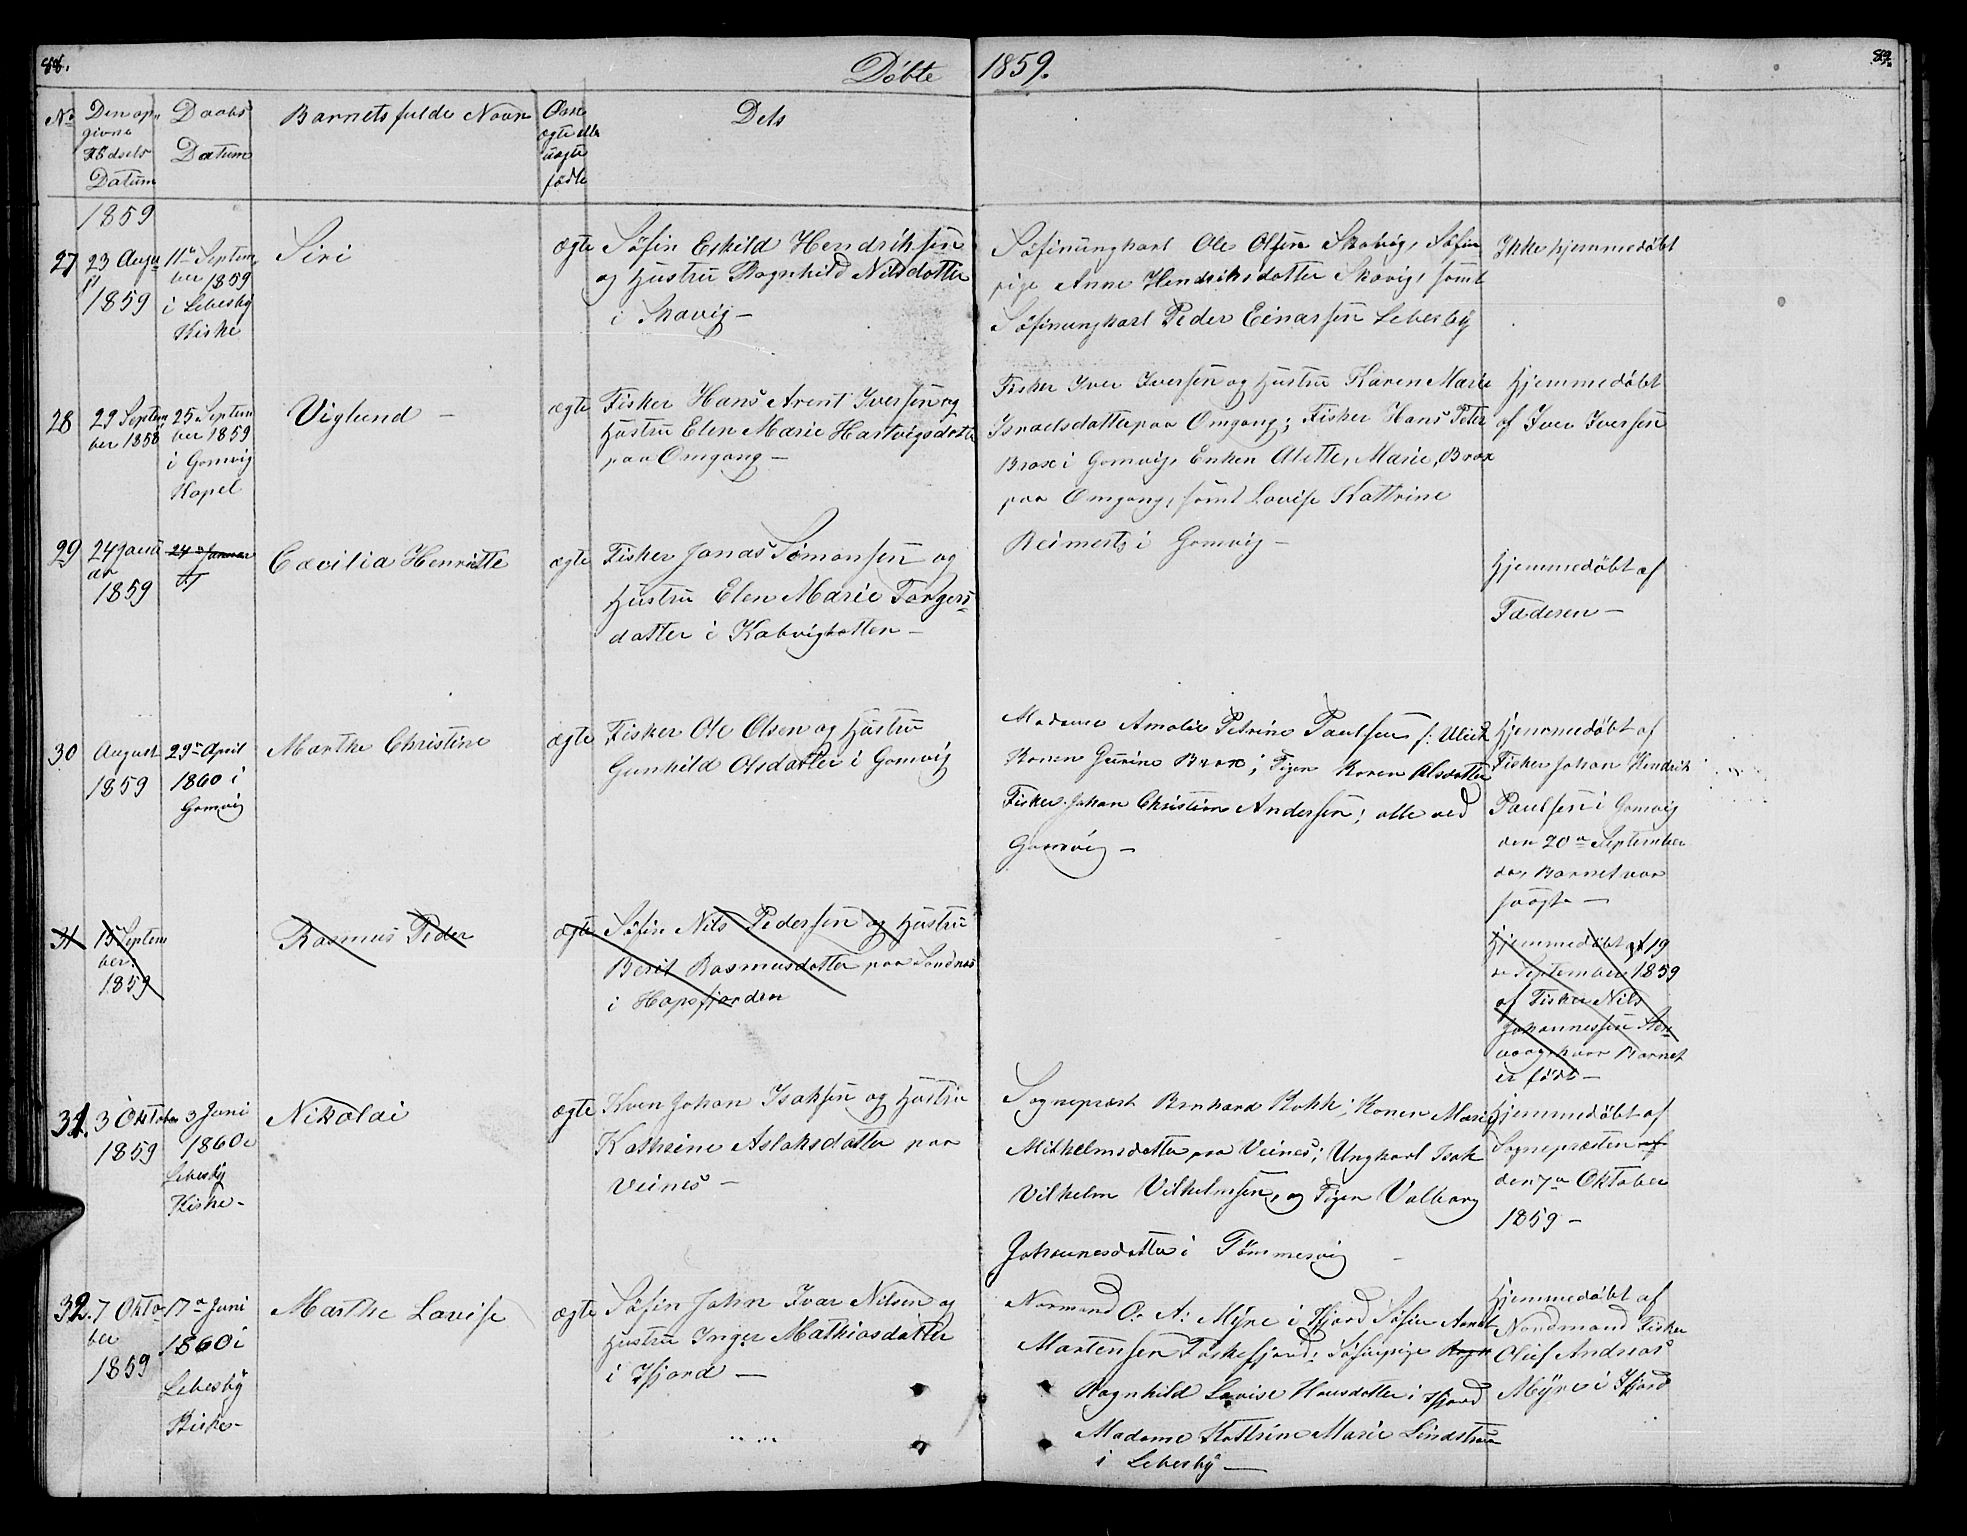 88.
Døbte 1859.
89.
No
Den op-
givne
Fødsels
Datum
Daabs
Datum
Barnets fulde Navn
Om
ægte eller
uægte
fødte
Dets
1859
27
23 Augu
st
1859
11te Septem
ber 1859
i Lebesby
Kirke
Siri
ægte
Søfin Eskild Hendriksen
og Hustru Ragnhild Nilsdatter
i Skavig –
Søfinungkarl Ole Olsen Skavig, Søfin
pige Anne Hendriksdatter Skavig, samt
Søfinungkarl Peder Einarsen Lebesby
Ikke hjemmedøbt
28
29 Septem
ber 1858
25 Septem
ber 1859
i Gamvig
Kapel
Viglund –
ægte
Fisker Hans Arent Iversen og
Hustru Elen Marie Hartvigsdatter
paa Omgang –
Fisker Iver Iversen og Hustru Karen Marie
Israelsdatter paa Omgang; Fisker Hans Peter
Brox i Gamvig, Enken Alette Marie Brox
paa Omgang, samt Lovise Kathrine
Reimers i Gamvig –
Hjemmedøbt
af Iver Iversen
29
24 Janu
ar
1859
24 Januar
Cæcilia Henriette
ægte
Fisker Jonas Simonsen og
Hustru Elen Marie Torgers=
datter i Kalvighatten –
Hjemmedøbt af
Faderen –
30
August
1859
29 April
1860 i
Gamvig
Marthe Christine
ægte
Fisker Ole Olsen og Hustru
Gunhild Olsdatter i Gamvig
Madame Amalie Petrine Paulsen f: Ulich
Konen Gurine Brox; Pigen Karen Olsdatter
Fisker Johan Christian Andersen; alle ved
Gamvig –
Hjemmedøbt af
Fisker Johan Hendrik
Paulsen i Gamvig
den 20 September
da Barnet var
svagt –
31
15 Septem
ber
1859
Rasmus Peder
ægte
Søfin Nils Pedersen og Hustru
Berit Rasmusdatter paa Sandnæs
i Hopsfjorden
Hjemmedøbt af 19
September 1859
af Fisker Nils
Johannessen
hvor Barnet
er født –
31.
3 Oktober
1859
3 Juni
1860 i
Lebesby
Kirke –
Nikolai
ægte
Kven Johan Isaksen og Hustru
Kathrine Aslaksdatter paa
Veines –
Sognepræst Bernhard Kokk; Konen Marie
Milhelmsdatter paa Veines; Ungkarl Isak
Vilhelm Vilhelmsen, og Pigen Valborg
Johannesdatter i Tømmervig –
Hjemmedøbt af
Sognepræsten af
den 7 Oktober
1859 –
32.
7 Okto-
ber
1859
17 Juni
1860 i
Lebesby
Kirke –
Marthe Lovise
ægte
Søfin John Ivar Nilsen og
Hustru Inger Mathiasdatter
i Ifjord –
Normand O: A: Myre i Ifjord Søfin Arent
Martensen Torskefjord, Søfinpige Ragn
Ragnhild Lovise Hansdatter i Ifjord
Madame Kathrine Marie Lindstrøm
i Lebesby –
Hjemmedøbt af
Nordmand Fisker
Oluf Andreas
Myre i Ifjord